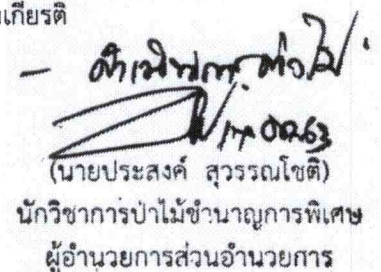 เกียรติ
- ดำเนินการต่อไป
(นายประสงค์ สุวรรณโชติ)
นักวิชาการป่าไม้ชำนาญการพิเศษ
ผู้อำนวยการส่วนอำนวยการ